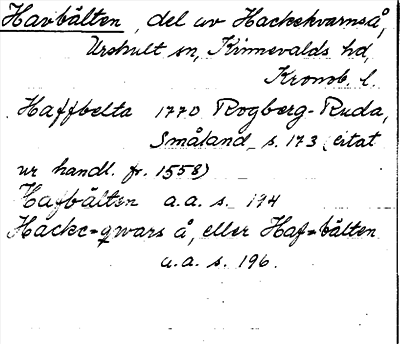 Havbälten, del av Hackekvarnså,
Urshult sn, Kinnevalds hd,
Kronob. l.
Haffbelta 1770 Rogberg-Ruda,
Småland s. 173 (citat
ur handl. fr. 1558)
Hafbälten a.a. s. 194
Hacke=qwars å, eller Haf=bälten
a.a. s. 196.